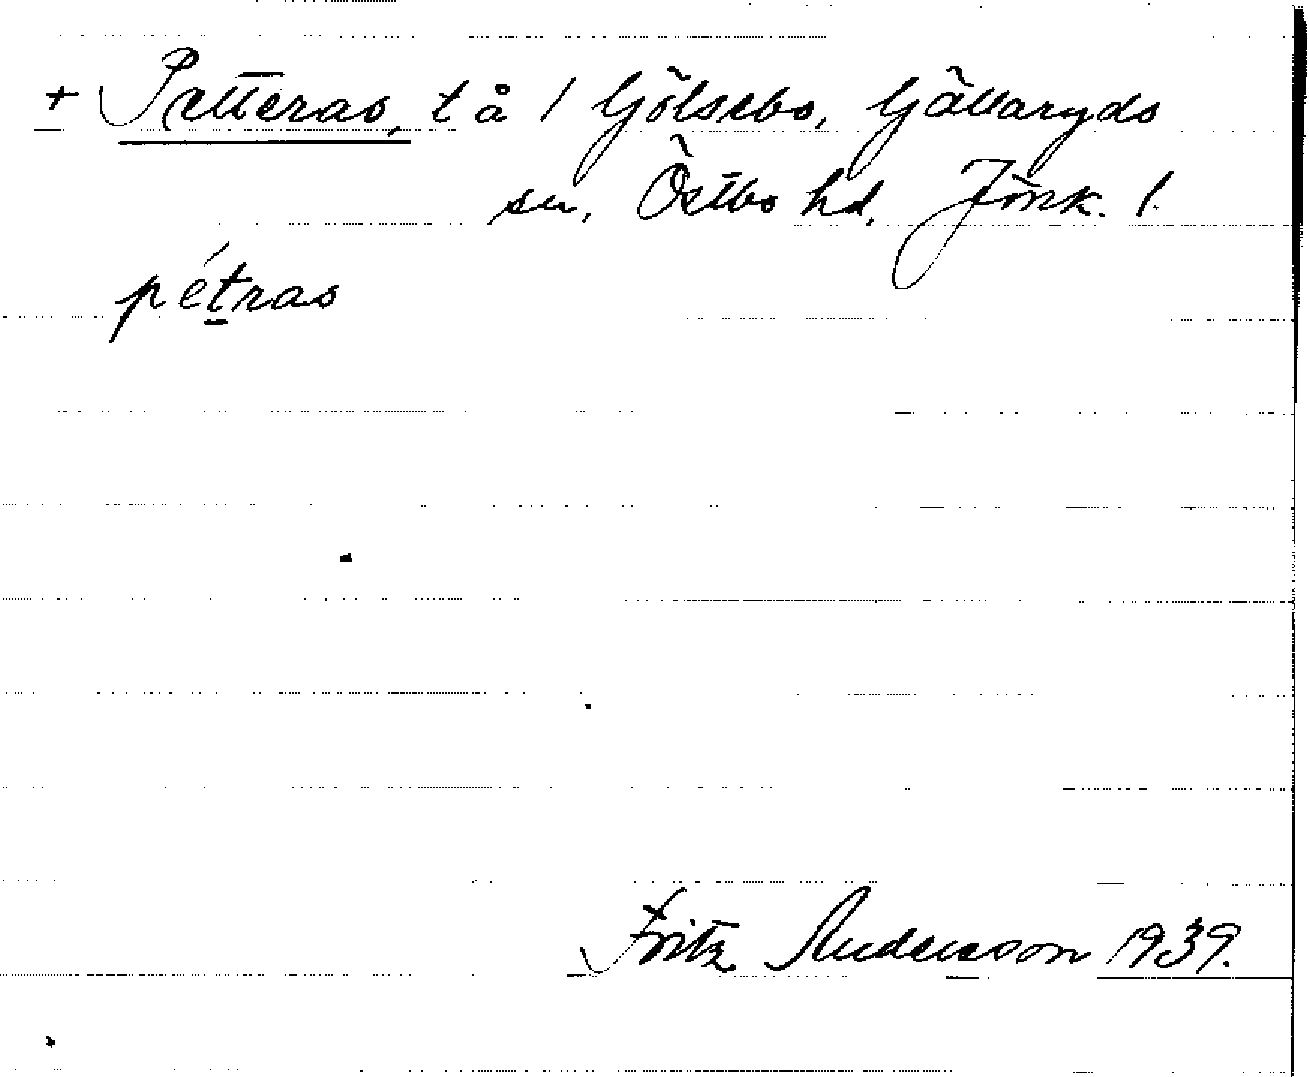 + Petteras, t å 1 Gölsebo, Gällaryds
sn, Östbo hd, Jönk. l.
pétras
Fritz Andersson 1939.